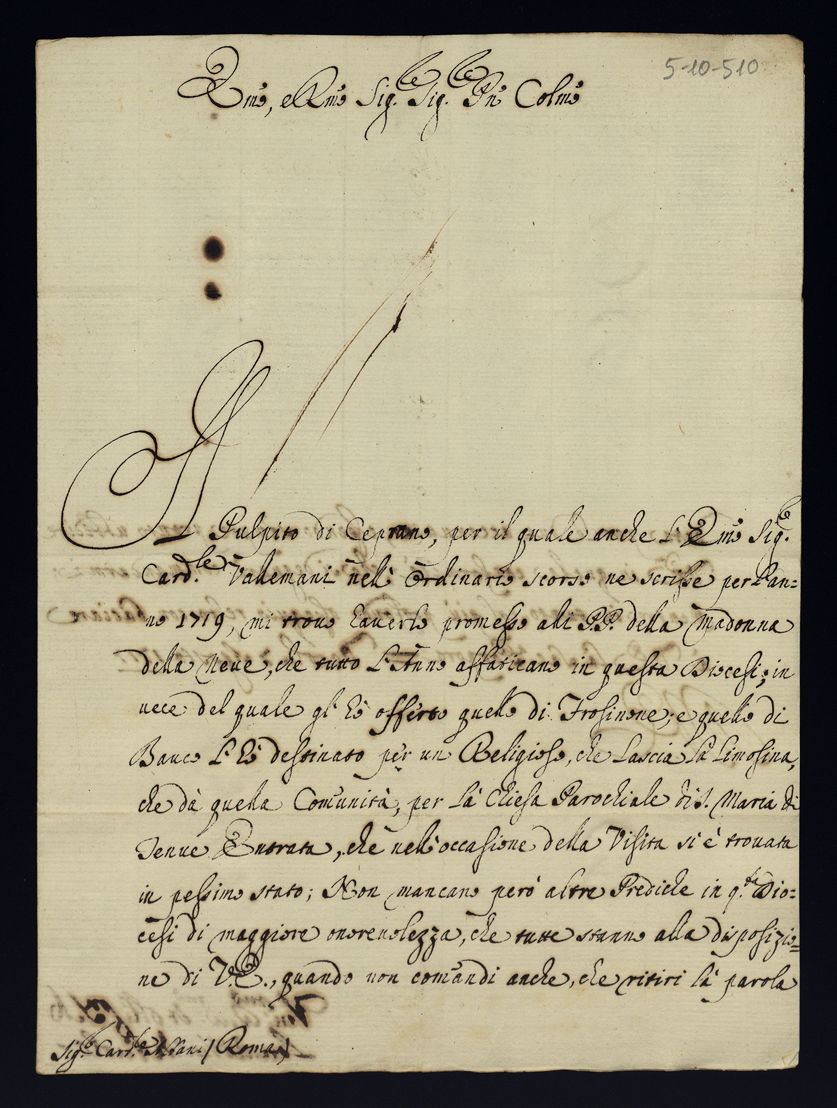 5-10-510
Emo, e Rmo Sig.re Sig.re Pne Colmo
Il Pulpito di Ceprano, per il quale anche l'Emo Sig.re
Card.le Vallemani nell'ordinario scorso ne scrisse per l'an=
no 1719, mi trovo haverlo promesso alli P.P. della Madonna
della Neve, che tutto l'Anno affaticano in questa Diocesi, in
vece del quale gl'hò offerto quello di Frosinone; e quello di
Bauco l'hò destinato per un Religioso, che lascia la limosina,
che dà quella Comunità, per la Chiesa Parochiale di S. Maria di
Tenue Entrata, che nell'occasione della Visita si è trovata
in pessimo stato; Non mancano però altre Prediche in q.ta Dio=
cesi di maggiore onorevolezza, che tutte stanno alla disposizio=
ne di V.E., quando non comandi anche, che ritiri la parola
Sig.re Card.le Albani (Roma)